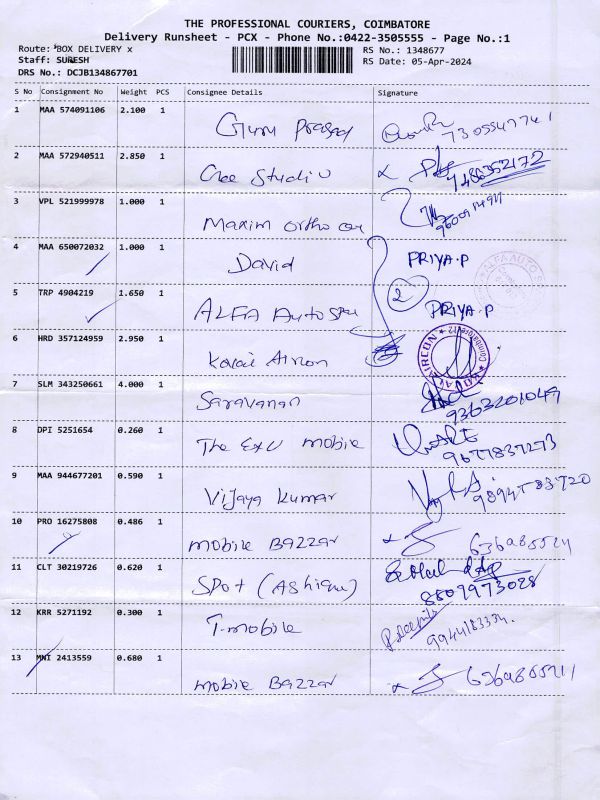 THE PROFESSIONAL COURIERS, COIMBATORE
Delivery Runsheet - PCX - Phone No.:0422-3505555 - Page No.:1
Route: BOX DELIVERY x
RS No.: 1348677
Staff: SURESH
RS Date: 05-Apr-2024
DRS No.: DCJB134867701
S No Consignment No Weight PCS Consignee Details Signature
1 MAA 574091106 2.100 1 Guru Prasad
2 MAA 572940511 2.850 1 Cree Studio 7486352172
3 VPL 521999978 1.000 1 Maxim ortho
4 MAA 650072032 1.000 1 David PRIYA.P
2
5 TRP 4904219 1.650 1 ALFA Auto PRIYA.P
6 HRD 357124959 2.950 1 Kovai Aircon
7 SLM 343250661 4.000 1 Saravanan 9363201049
8 DPI 5251654 0.260 1 The Exu mobile 9677837273
9 MAA 944677201 0.590 1 Vijaya Kumar
10 PRO 16275808 0.486 1 mobile Bazzar
11 CLT 30219726 0.620 1 SPot (Ashique) 8807973028
12 KRR 5271192 0.300 1 T-mobile
13 MNI 2413559 0.680 1 mobile Bazzar